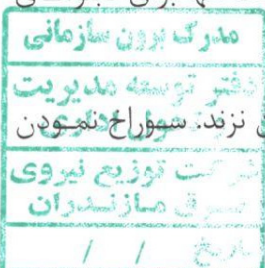 مدرک برون سازمانی
دفتر توسعه مدیریت
نزند. سوراخ نمودن
شرکت توزیع نیروی
برق مازندران
تاریخ / /